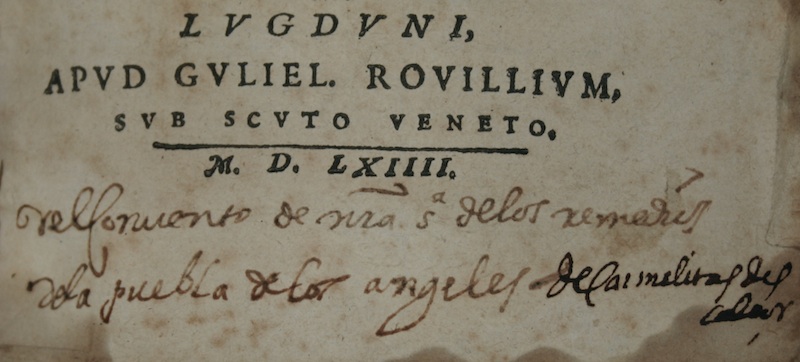 LVGDVNI,
APVD GVLIEL. ROVILLIVM,
SVB SCVTO VENETO.
M. D. LXIIII.
del Convento de nra sª de los remedios
de la puebla de los angeles de Carmelitas des
calços